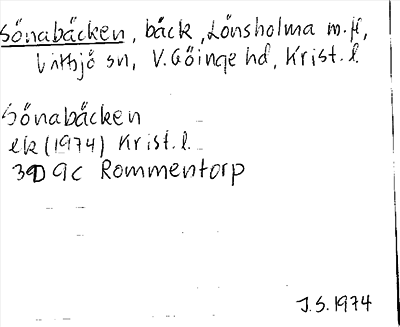 Sönabäcken, bäck, Lönsholma m.fl,
Vittsjö sn, V. Göinge hd, Krist. l.
Sönabäcken
ek (1974) Krist. l.
3D 9c Rommentorp
J.S. 1974